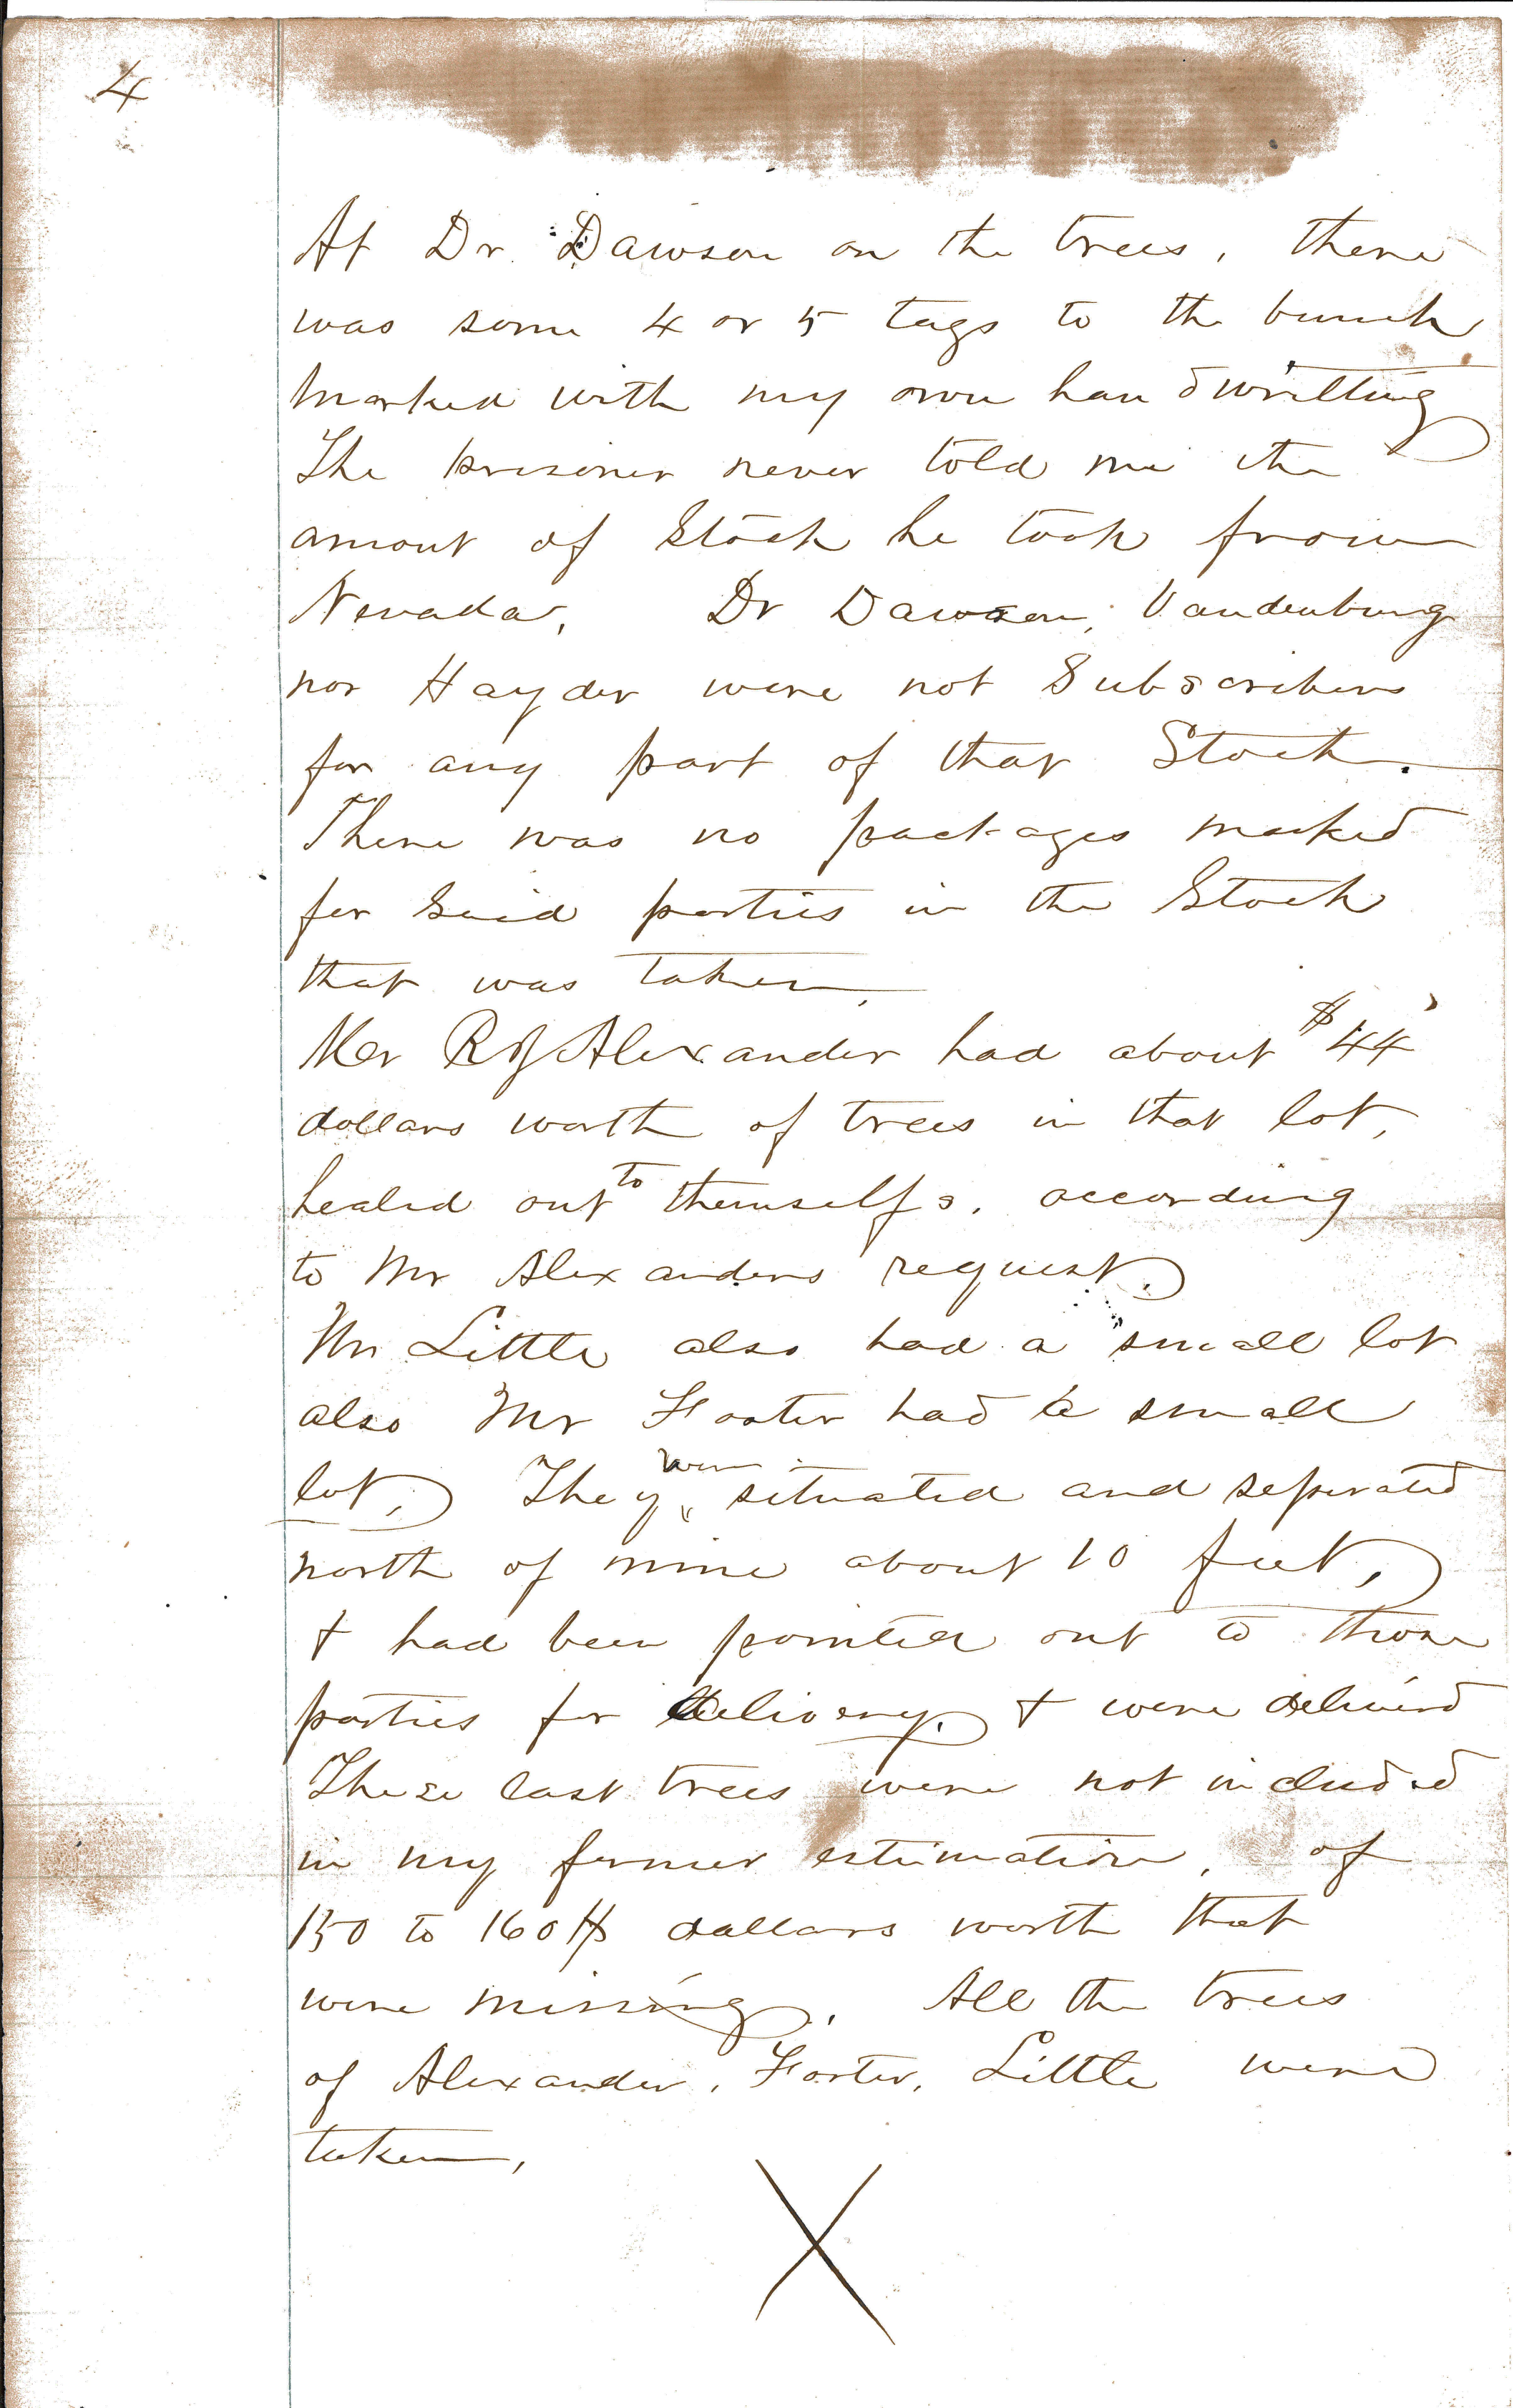 4
At Dr. Dawson on the trees, there
was some 4 or 5 tags to the bunch
Marked with my own handwritting
The prisoner never told me the
amout of Stock he took from
Nevada, Dr Dawson, Vandenburg
nor Hayder were not Subscribers
for any part of that Stock.
There was no packages marked
for said parties in the Stock
that was taken,
Mer Alexander had about $44
dollars worth of trees in that lot,
healed out to themselfs, according
to Mr Alexanders request.
Mr Little also had a small lot
also Mr Foster had a small
lot, They were situated and seperated
north of mine about 10 feet,
+ had been pointed out to those
parties for delivery. + were deliverd
These last trees were not included
in my former estimation, of
150 to 160 $ dollars worth that
were missing, All the trees
of Alexander, Foster, Little were
taken,
X